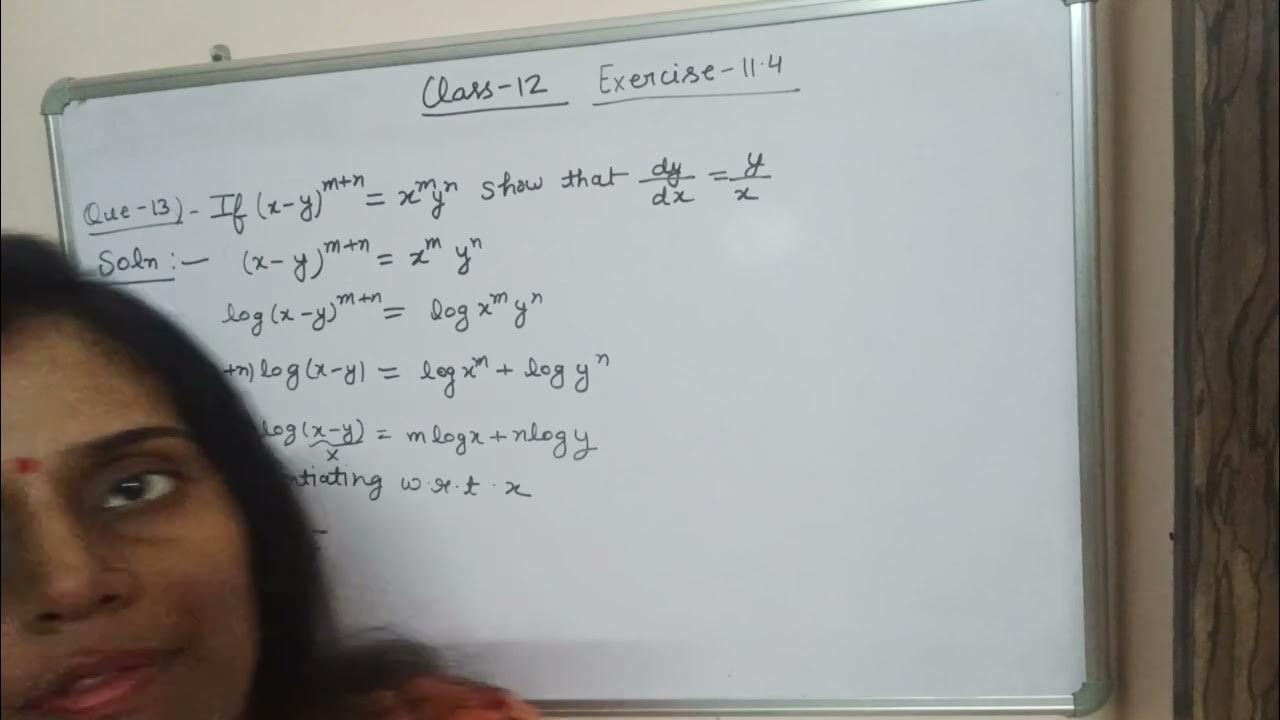 Class-12 Exercise-11.4
Que-13)- If (x-y)^{m+n} = x^m y^n show that dy/dx = y/x
Soln:- (x-y)^{m+n} = x^m y^n
log(x-y)^{m+n} = log x^m y^n
+n) log(x-y) = log x^m + log y^n
log(x-y) = m log x + n log y
x
ntiating w.r.t. x